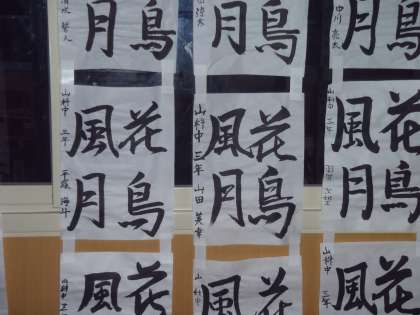 花鳥
風月
山科中 三年 山田 英幸
花鳥
風月
山科中 三年 平塚 海斗
花鳥
風月
山科中 三年
鳥
月
鳥
月
鳥
月
中川 亮太
花
風
山科中 三年
花
風
花
風
山科中